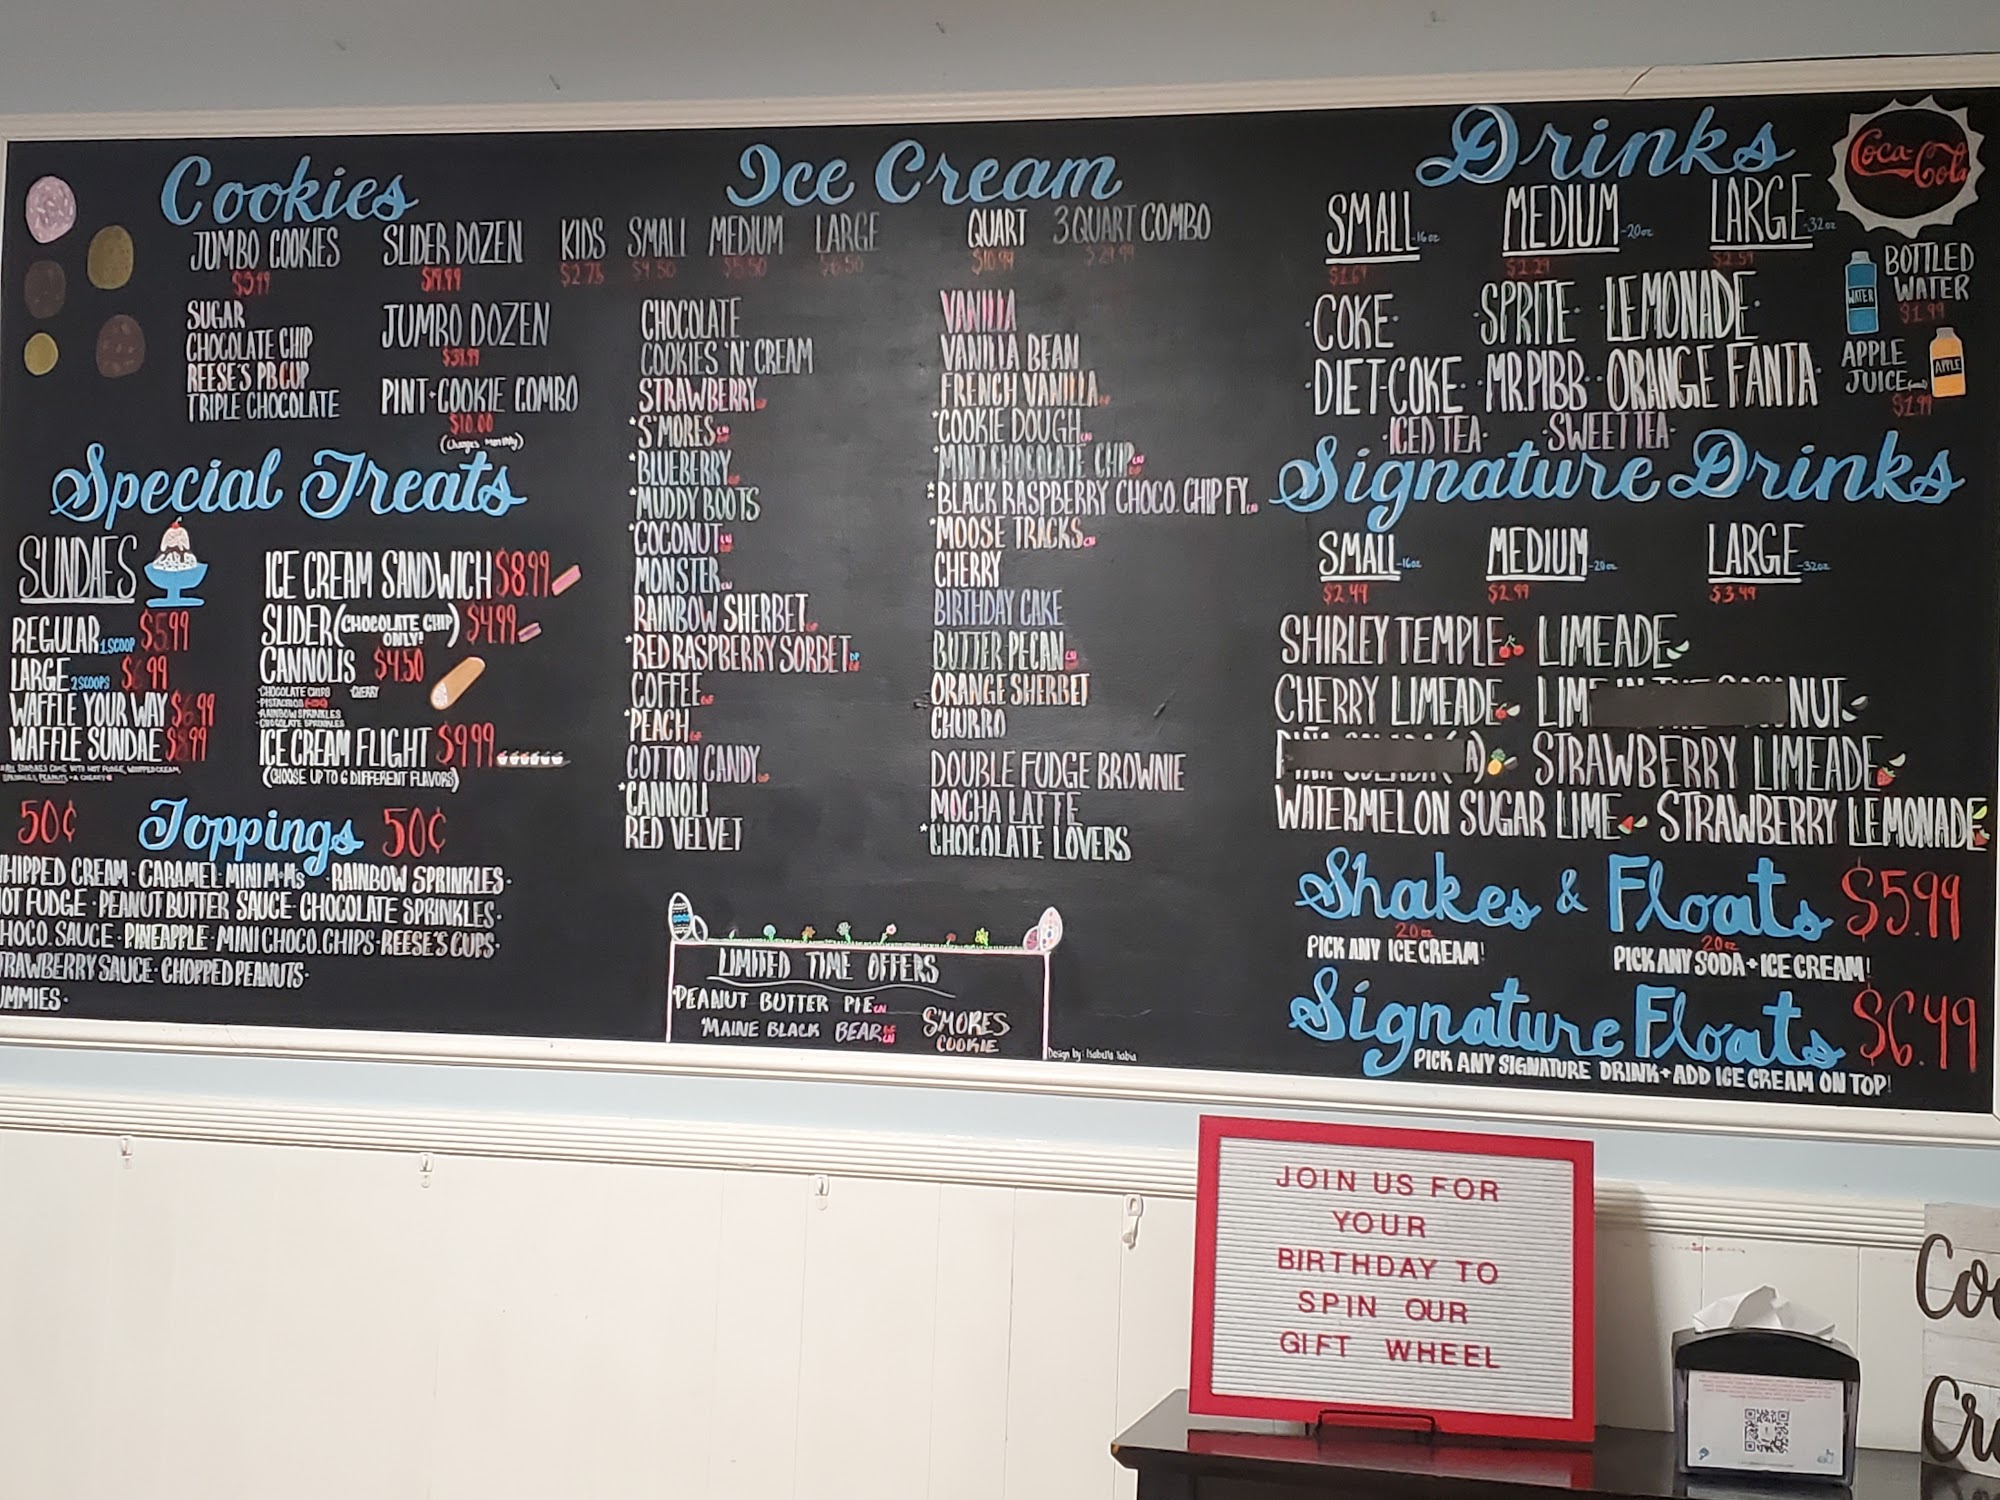 Cookies
JUMBO COOKIES
$3.99
SUGAR
CHOCOLATE CHIP
REESE'S PB CUP
TRIPLE CHOCOLATE
SLIDER DOZEN
$19.99
JUMBO DOZEN
$39.99
PINT + COOKIE COMBO
$10.00
(Changes Monthly)
Special Treats
SUNDAES
REGULAR 1 SCOOP $5.99
LARGE 2 SCOOPS $6.99
WAFFLE YOUR WAY $6.99
WAFFLE SUNDAE $8.99
ALL SUNDAES COME WITH HOT FUDGE, WHIPPED CREAM,
SPRINKLES, PEANUTS + A CHERRY
ICE CREAM SANDWICH $8.99
SLIDER (CHOCOLATE CHIP ONLY!) $4.99
CANNOLIS $4.50
·CHOCOLATE CHIPS ·CHERRY
·PISTACHIO
·RAINBOW SPRINKLES
·CHOCOLATE SPRINKLES
ICE CREAM FLIGHT $9.99
(CHOOSE UP TO 6 DIFFERENT FLAVORS)
50¢ Toppings 50¢
HIPPED CREAM · CARAMEL · MINI M+Ms · RAINBOW SPRINKLES ·
OT FUDGE · PEANUT BUTTER SAUCE · CHOCOLATE SPRINKLES ·
HOCO. SAUCE · PINEAPPLE · MINI CHOCO. CHIPS · REESE'S CUPS ·
TRAWBERRY SAUCE · CHOPPED PEANUTS ·
UMMIES ·
Ice Cream
KIDS SMALL MEDIUM LARGE QUART 3 QUART COMBO
$2.75 $4.50 $5.50 $6.50 $10.99 $29.99
CHOCOLATE
COOKIES 'N' CREAM
STRAWBERRY GF
*S'MORES CN
*BLUEBERRY GF
*MUDDY BOOTS
*COCONUT CN
MONSTER CN
RAINBOW SHERBET GF
*RED RASPBERRY SORBET DF GF
COFFEE GF
*PEACH GF
COTTON CANDY GF
*CANNOLI
RED VELVET
VANILLA
VANILLA BEAN
FRENCH VANILLA GF
*COOKIE DOUGH CN
*MINT CHOCOLATE CHIP CN GF
*BLACK RASPBERRY CHOCO. CHIP FY. CN
*MOOSE TRACKS CN
CHERRY
BIRTHDAY CAKE
BUTTER PECAN CN
ORANGE SHERBET
CHURRO
DOUBLE FUDGE BROWNIE
MOCHA LATTE
*CHOCOLATE LOVERS
LIMITED TIME OFFERS
*PEANUT BUTTER PIE CN
*MAINE BLACK BEAR GF CN
S'MORES
COOKIE
Design by: Isabella
Drinks
Coca-Cola
SMALL-16oz MEDIUM-20oz LARGE-32oz
$1.69 $2.29 $2.59
·COKE· SPRITE· ·LEMONADE·
·DIET·COKE· ·MR.PIBB· ·ORANGE FANTA·
·ICED TEA· ·SWEET TEA·
WATER
BOTTLED
WATER
$1.99
APPLE
JUICE
APPLE
$1.99
Signature Drinks
SMALL-16oz MEDIUM-20oz LARGE-32oz
$2.49 $2.99 $3.49
SHIRLEY TEMPLE LIMEADE
CHERRY LIMEADE LIM NUT
A) STRAWBERRY LIMEADE
WATERMELON SUGAR LIME STRAWBERRY LEMONADE
Shakes & Floats $5.99
20oz 20oz
PICK ANY ICE CREAM! PICK ANY SODA + ICE CREAM!
Signature Floats $6.49
PICK ANY SIGNATURE DRINK + ADD ICE CREAM ON TOP!
JOIN US FOR
YOUR
BIRTHDAY TO
SPIN OUR
GIFT WHEEL
Coo
Cr